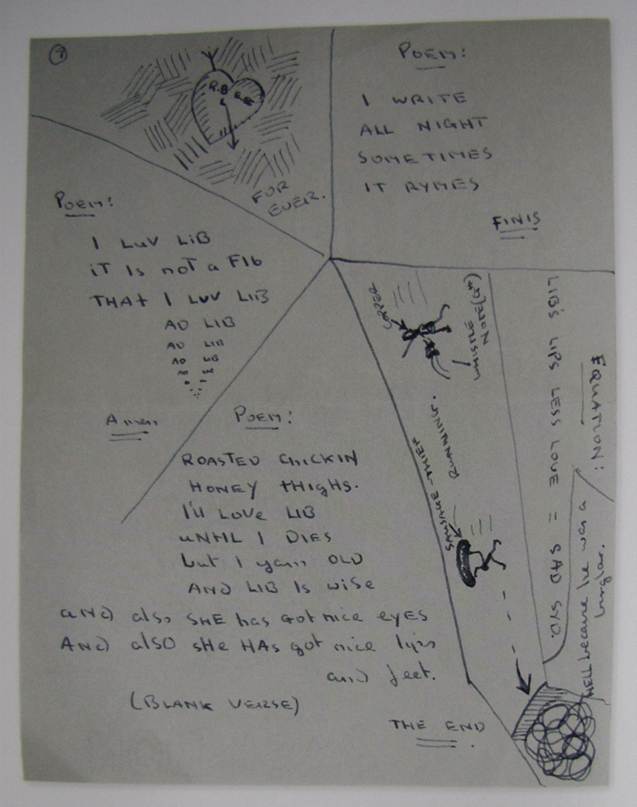 FOR
EVER.
POEM:
I WRITE
ALL NIGHT
SOMETIMES
IT RYMES
FINIS
POEM:
I LUV LIB
IT IS NOT A FIB
THAT I LUV LIB
AD LIB
AD LIB
AD LIB
Amen
POEM:
ROASTED CHICKIN
HONEY THIGHS.
I'll LOVE LIB
UNTIL I DIES
but I yam OLD
AND LIB IS WISE
AND also SHE has GOT nice EYES
AND alSO SHE HAS got nice lips
and feet.
(BLANK VERSE)
THE END
COPPER
WHISTLE
SAUSAGE-THIEF
RUNNING.
EQUATION:
LIB'S LIPS LESS LOVE = SAD SYD.
HELL because he was a
burglar.